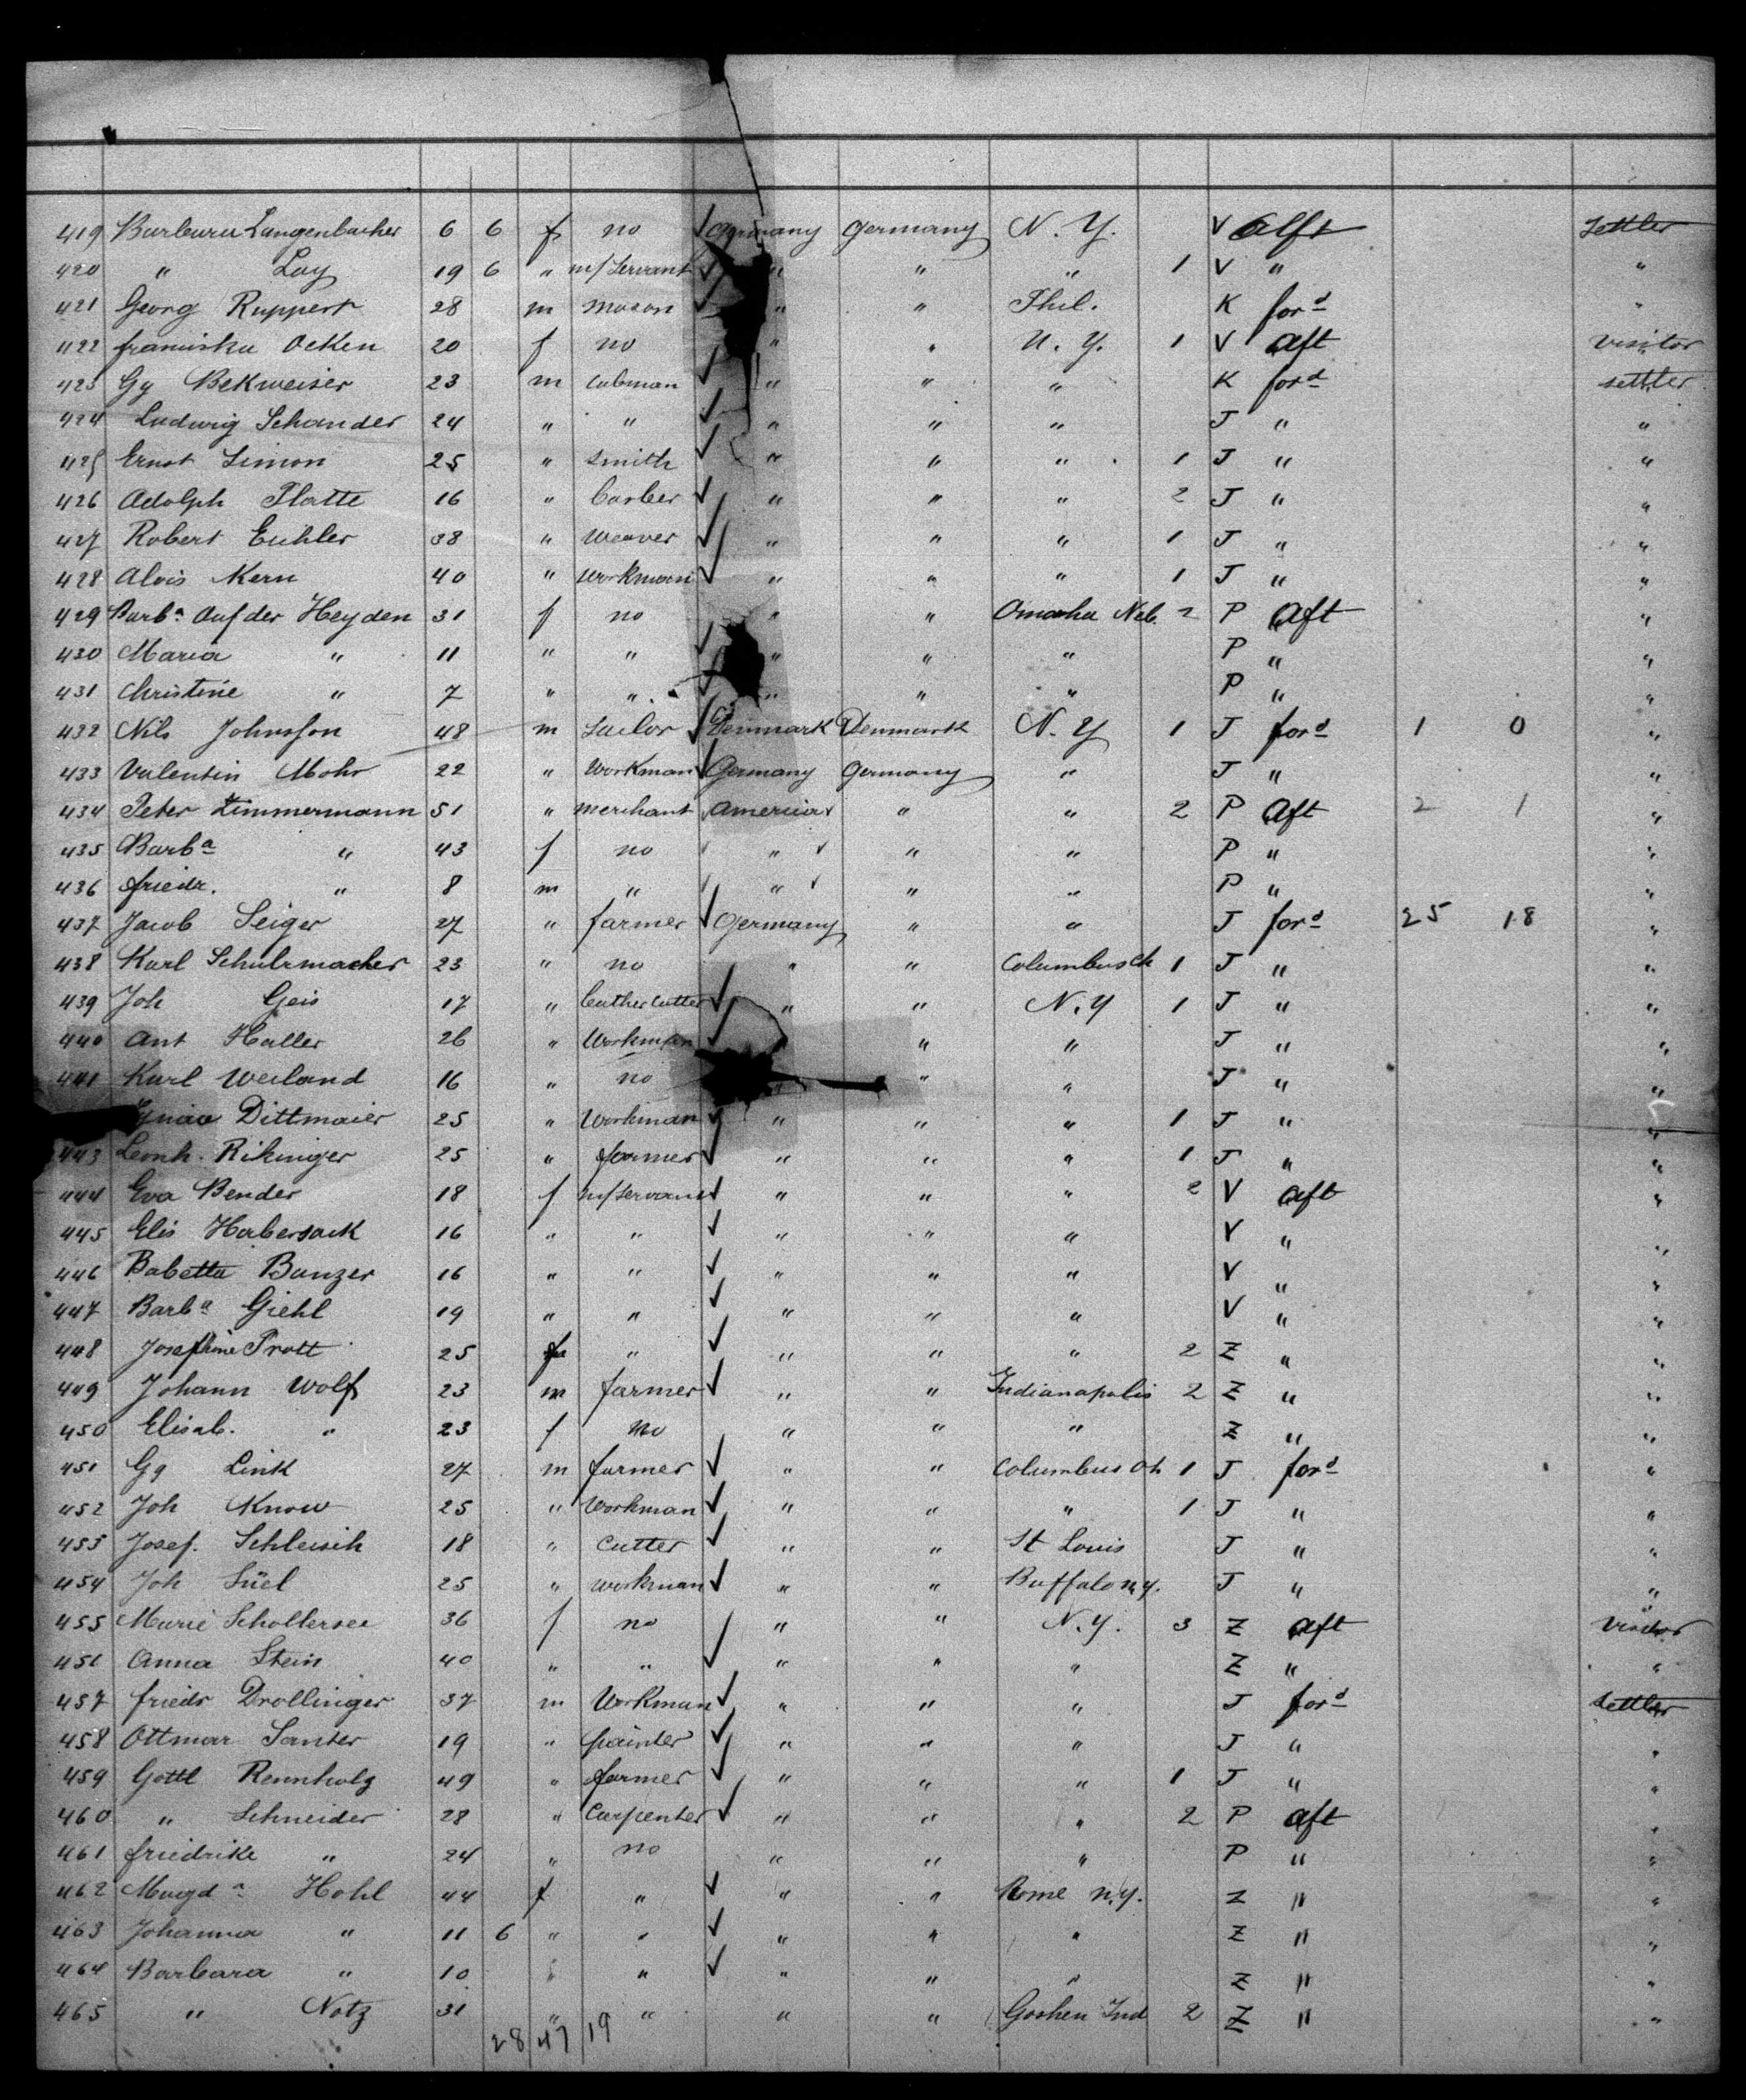 419 Barbara Langenbacher 6 6 f no Germany Germany N. Y. V Aft Settler
420 " Lay 19 6 " m/Servant " " " 1 V " "
421 Georg Ruppert 28 m mason " " Phil. K for d "
422 franziska Ocken 20 f no " " N. Y. 1 V Aft Visitor
423 Gg Bekweiser 23 m cabman " " " K for d settler
424 Ludwig Schander 24 " " " " " J " "
425 Ernst Simon 25 " Smith " " " 1 J " "
426 Adolph Platte 16 " barber " " " 2 J " "
427 Robert Eichler 38 " Weaver " " " 1 J " "
428 Alois Kern 40 " Workman " " " 1 J " "
429 Barb a Auf der Heyden 31 f no " " Omaha Neb. 2 P Aft "
430 Maria " 11 " " " " " P " "
431 Christine " 7 " " " " " P " "
432 Nils Johnsson 48 m Sailor Denmark Denmark N. Y 1 J for d 1 0 "
433 Valentin Mohr 22 " Workman Germany Germany " J " "
434 Peter Zimmermann 51 " merchant America " " 2 P Aft 2 1 "
435 Barb a " 43 f no " " " P " "
436 friedr. " 8 m " " " " P " "
437 Jacob Seiger 27 " farmer Germany " " J for d 25 18 "
438 Karl Schuhmacher 23 " no " " Columbus Oh 1 J " "
439 Joh Geis 17 " leather cutter " " N. Y 1 J " "
440 Ant Haller 26 " Workman " " J " "
441 Karl Weiland 16 " no " " " J " "
Dittmaier 25 " Workman " " " 1 J " "
443 Leonh. Rikinger 25 " farmer " " " 1 J " "
444 Eva Bender 18 f m/Servant " " " 2 V aft "
445 Elis Habersack 16 " " " " " V " "
446 Babetta Banzer 16 " " " " " V " "
447 Barb a Giehl 19 " " " " " V " "
448 Josephine Trott 25 f " " " " 2 Z " "
449 Johann Wolf 23 m farmer " " Indianapolis 2 Z " "
450 Elisab. " 23 f no " " " Z " "
451 Gg Link 27 m farmer " " Columbus Oh 1 J for d "
452 Joh Know 25 " Workman " " " 1 J " "
453 Josef. Schleisih 18 " Cutter " " St Louis J " "
454 Joh Süel 25 " workman " " Buffalo n. y. J " "
455 Marie Schollersee 36 f no " " N. Y. 3 Z aft Visitor
451 Anna Stein 40 " " " " " Z " "
457 friedr Drollinger 37 m Workman " " " J for d settler
458 Ottmar Santer 19 " painter " " " J " "
459 Gottl Rennholz 49 " farmer " " " 1 J " "
460 " Schneider 28 " Carpenter " " " 2 P aft "
461 friedrike " 24 " no " " " P " "
462 Magd a Hohl 44 f " " " Rome n. y. Z " "
463 Johanna " 11 6 " " " " " Z " "
464 Barbara " 10 " " " " " Z " "
465 " Notz 31 " " " " Goshen Ind 2 Z " "
28 47 19